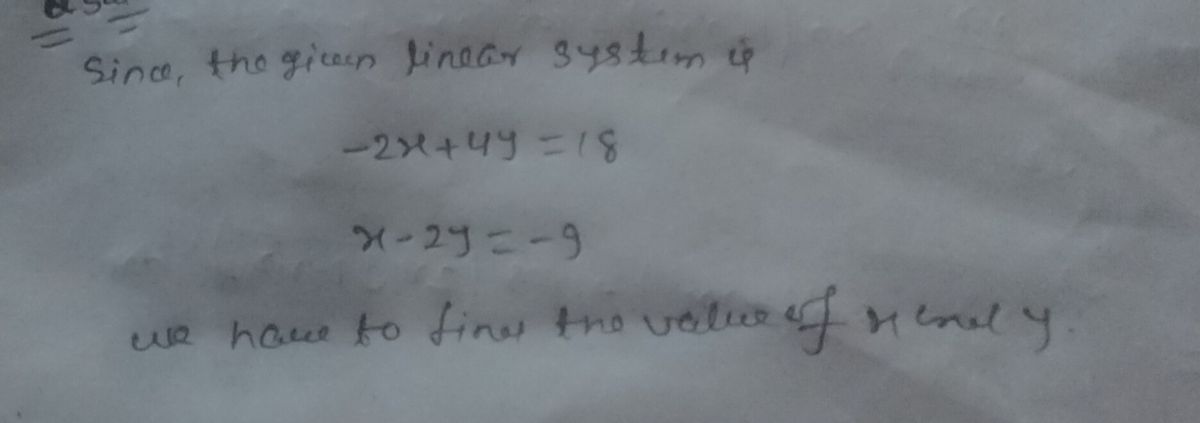 Since, the given linear system is
-2x+4y=18
x-2y=-9
we have to find the value of x and y.